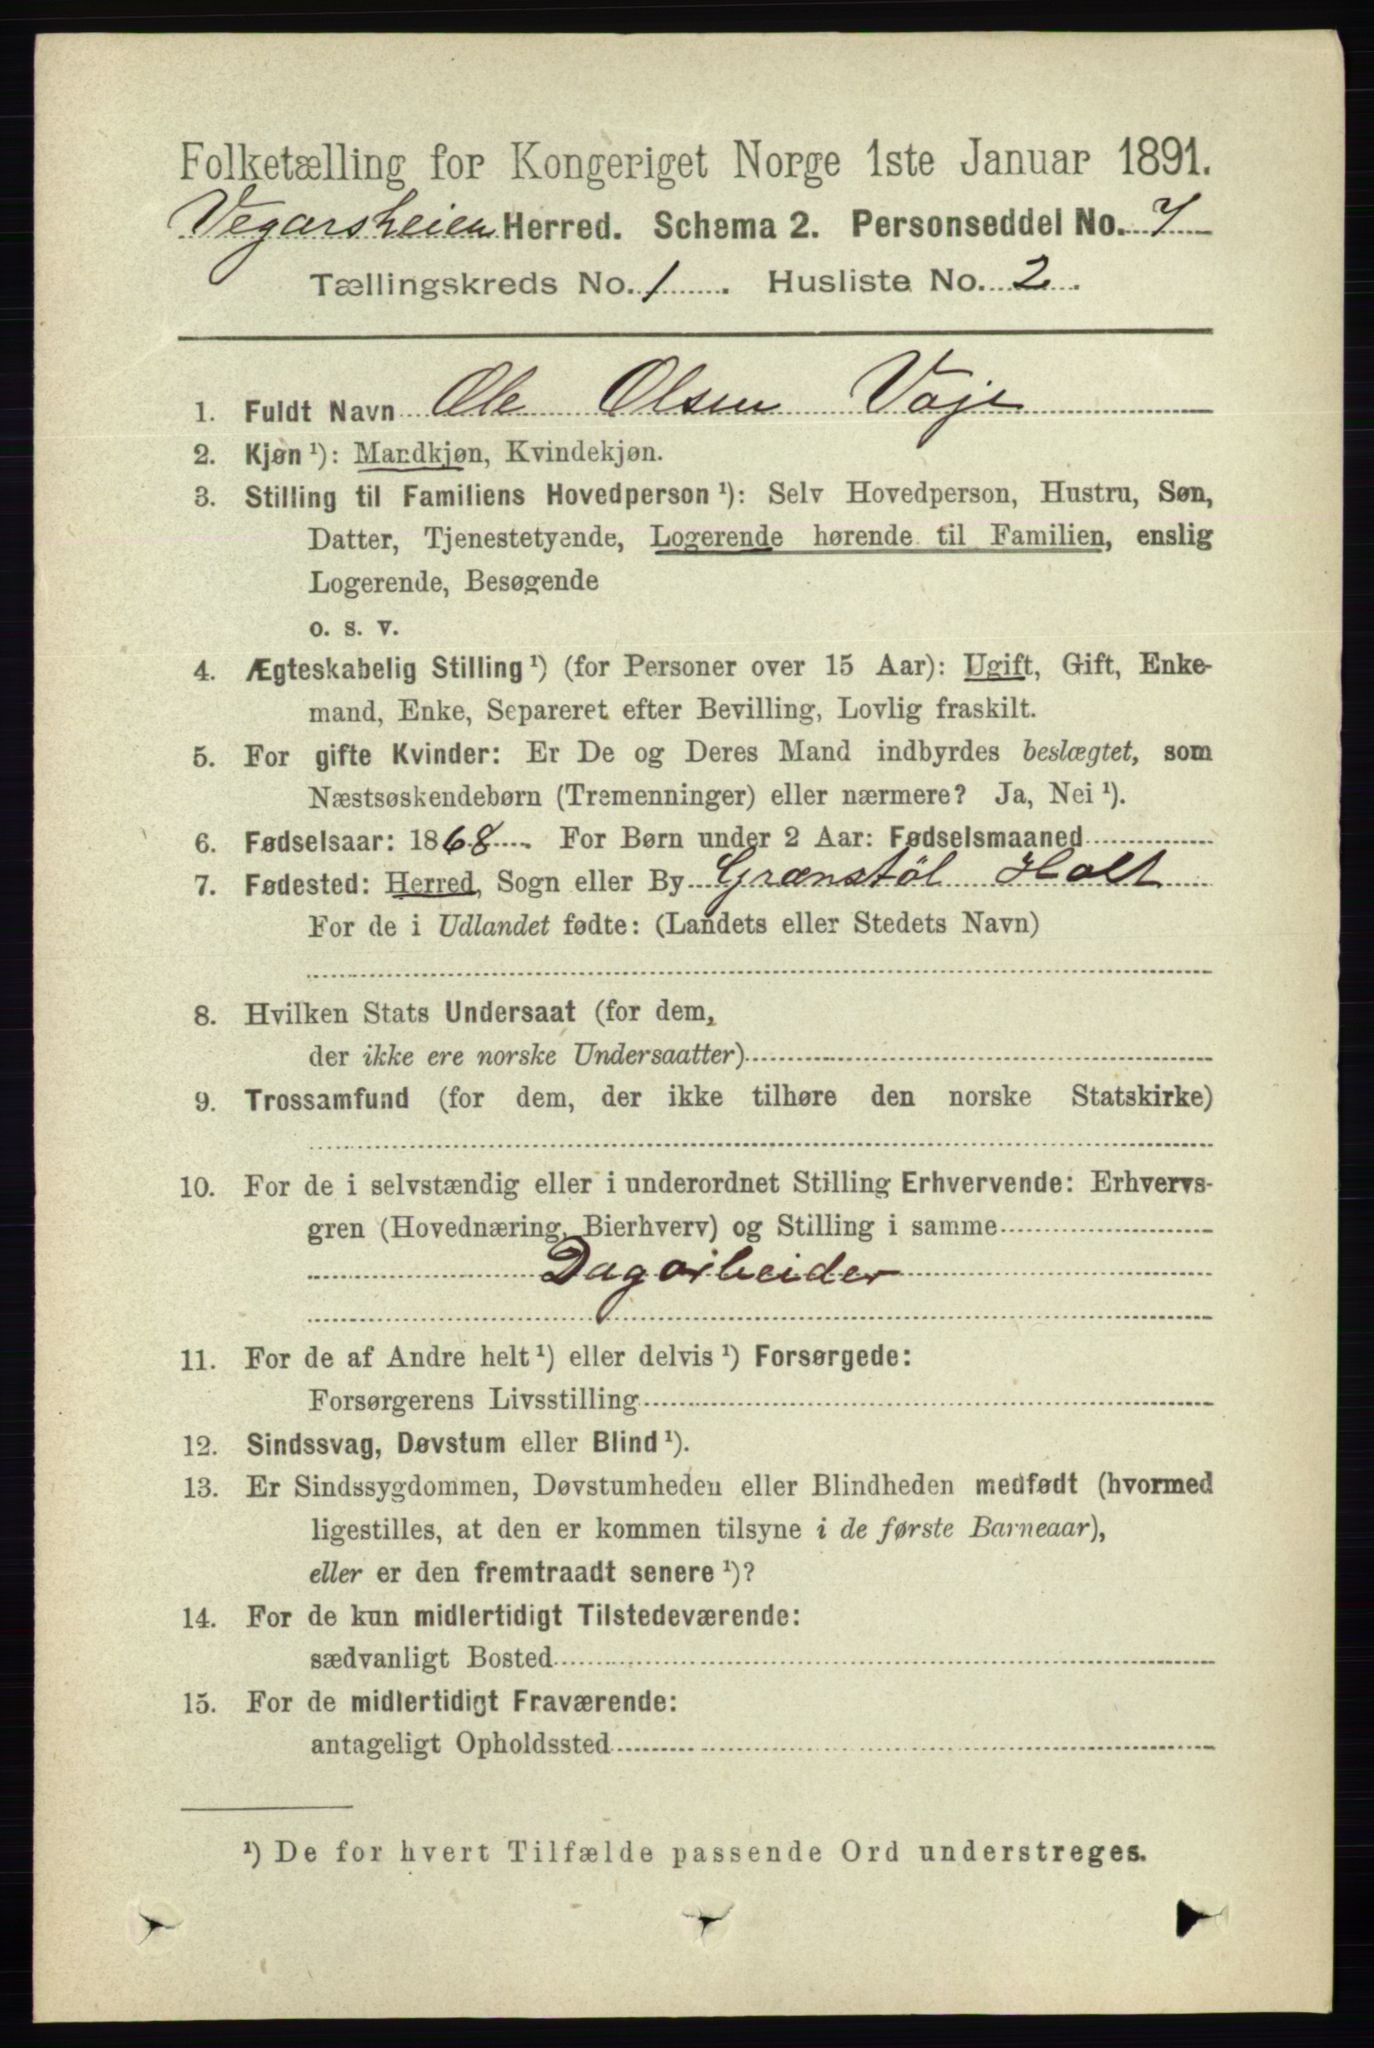 Folketælling for Kongeriget Norge 1ste Januar 1891.
Vegarsheien Herred. Schema 2. Personseddel No. 7
Tællingskreds No. 1. Husliste No. 2.
1. Fuldt Navn Ole Olsen Vaje
2. Kjøn ¹): Mandkjøn, Kvindekjøn.
3. Stilling til Familiens Hovedperson ¹): Selv Hovedperson, Hustru, Søn,
Datter, Tjenestetyende, Logerende hørende til Familien, enslig
Logerende, Besøgende
o. s. v.
4. Ægteskabelig Stilling ¹) (for Personer over 15 Aar): Ugift, Gift, Enke-
mand, Enke, Separeret efter Bevilling, Lovlig fraskilt.
5. For gifte Kvinder: Er De og Deres Mand indbyrdes beslægtet, som
Næstsøskendebørn (Tremenninger) eller nærmere? Ja, Nei ¹).
6. Fødselsaar: 1868. For Børn under 2 Aar: Fødselsmaaned
7. Fødested: Herred, Sogn eller By Grænstøl Holt
For de i Udlandet fødte: (Landets eller Stedets Navn)
8. Hvilken Stats Undersaat (for dem,
der ikke ere norske Undersaatter)
9. Trossamfund (for dem, der ikke tilhøre den norske Statskirke)
10. For de i selvstændig eller i underordnet Stilling Erhvervende: Erhvervs-
gren (Hovednæring, Bierhverv) og Stilling i samme
Dagarbeider
11. For de af Andre helt ¹) eller delvis ¹) Forsørgede:
Forsørgerens Livsstilling
12. Sindssvag, Døvstum eller Blind ¹).
13. Er Sindssygdommen, Døvstumheden eller Blindheden medfødt (hvormed
ligestilles, at den er kommen tilsyne i de første Barneaar),
eller er den fremtraadt senere ¹)?
14. For de kun midlertidigt Tilstedeværende:
sædvanligt Bosted
15. For de midlertidigt Fraværende:
antageligt Opholdssted
¹) De for hvert Tilfælde passende Ord understreges.